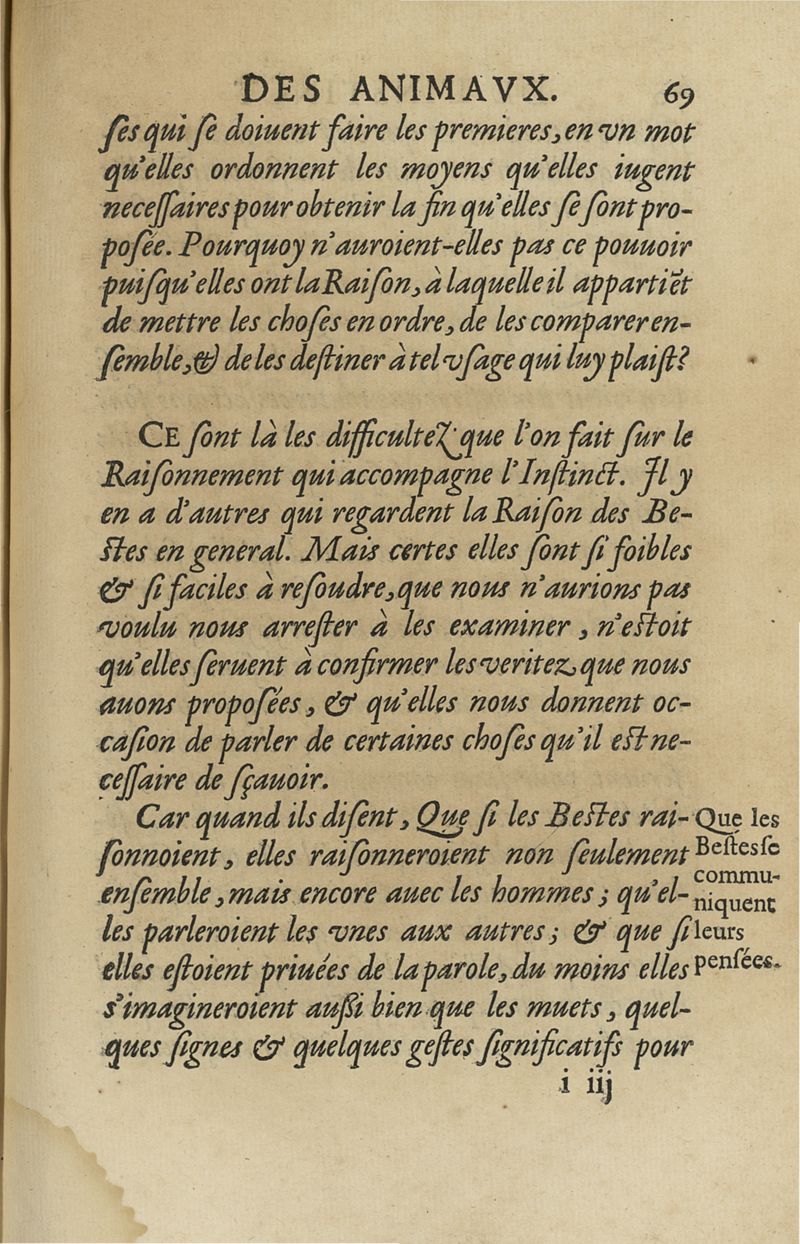 DES ANIMAVX. 69
ſes qui ſe doiuent faire les premieres, en vn mot
qu'elles ordonnent les moyens qu'elles iugent
neceſſaires pour obtenir la fin qu'elles ſe ſont pro-
poſée. Pourquoy n'auroient-elles pas ce pouuoir
puiſqu'elles ont la Raiſon, à laquelle il appartiẽt
de mettre les choſes en ordre, de les comparer en-
ſemble, & de les deſtiner à tel vſage qui luy plaiſt?
CE ſont là les difficultez que l'on fait ſur le
Raiſonnement qui accompagne l'Inſtinct. Il y
en a d'autres qui regardent la Raiſon des Be-
ſtes en general. Mais certes elles ſont ſi foibles
& ſi faciles à reſoudre, que nous n'aurions pas
voulu nous arreſter à les examiner, n'eſtoit
qu'elles ſeruent à confirmer les veritez, que nous
auons propoſées, & qu'elles nous donnent oc-
caſion de parler de certaines choſes qu'il eſt ne-
ceſſaire de ſçauoir.
Car quand ils diſent, Que ſi les Beſtes rai-
ſonnoient, elles raiſonneroient non ſeulement
enſemble, mais encore auec les hommes; qu'el-
les parleroient les vnes aux autres; & que ſi
elles eſtoient priuées de la parole, du moins elles
s'imagineroient auſſi bien que les muets, quel-
ques ſignes & quelques geſtes ſignificatifs pour
Que les
Beſtes ſe
commu-
niquent
leurs
penſées.
i iij